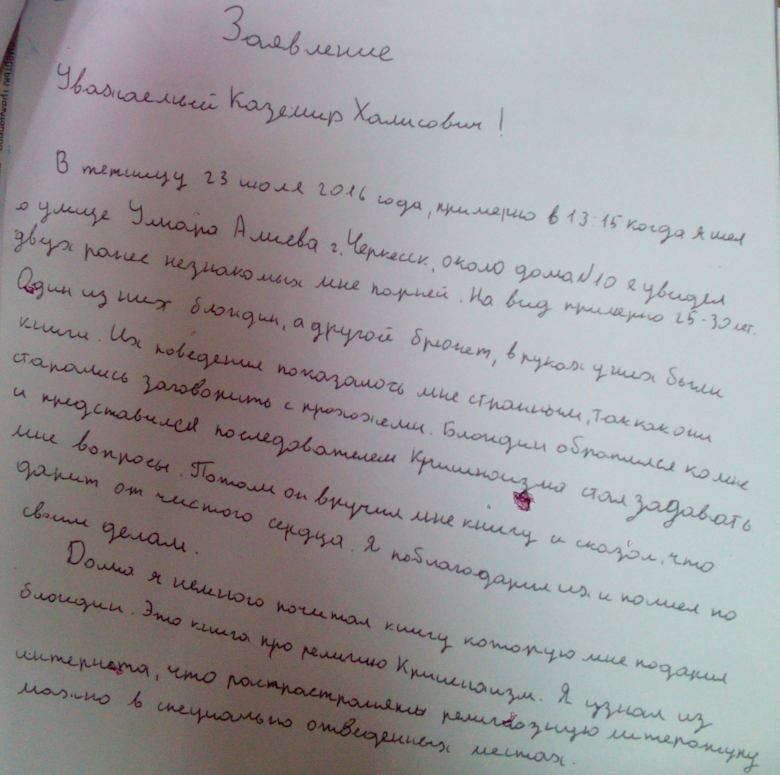 Заявление
Уважаемый Каземир Халисович!
В пятницу 23 июля 2016 года, примерно в 13:15 когда я шел
о улице Умара Алиева г. Черкесск, около дома №10 я увидел
двух ранее незнакомых мне парней. На вид примерно 25-30 лет.
Один из них блондин, а другой брюнет, в руках у них были
книги. Их поведение показалось мне странным, так как они
старались заговорить с прохожеми. Блондин обратился ко мне
и представился последователем Кришноизма стал задавать
мне вопросы. Потом он вручил мне книгу и сказал, что
дарит от чистого сердца. Я поблагодарил их и пошел по
своим делам.
Дома я немного почитал книгу которую мне подарил
блондин. Это книга про религию Кришнаизм. Я узнал из
интернета, что растространять религиозную литературу
можно в специально отведенных местах.